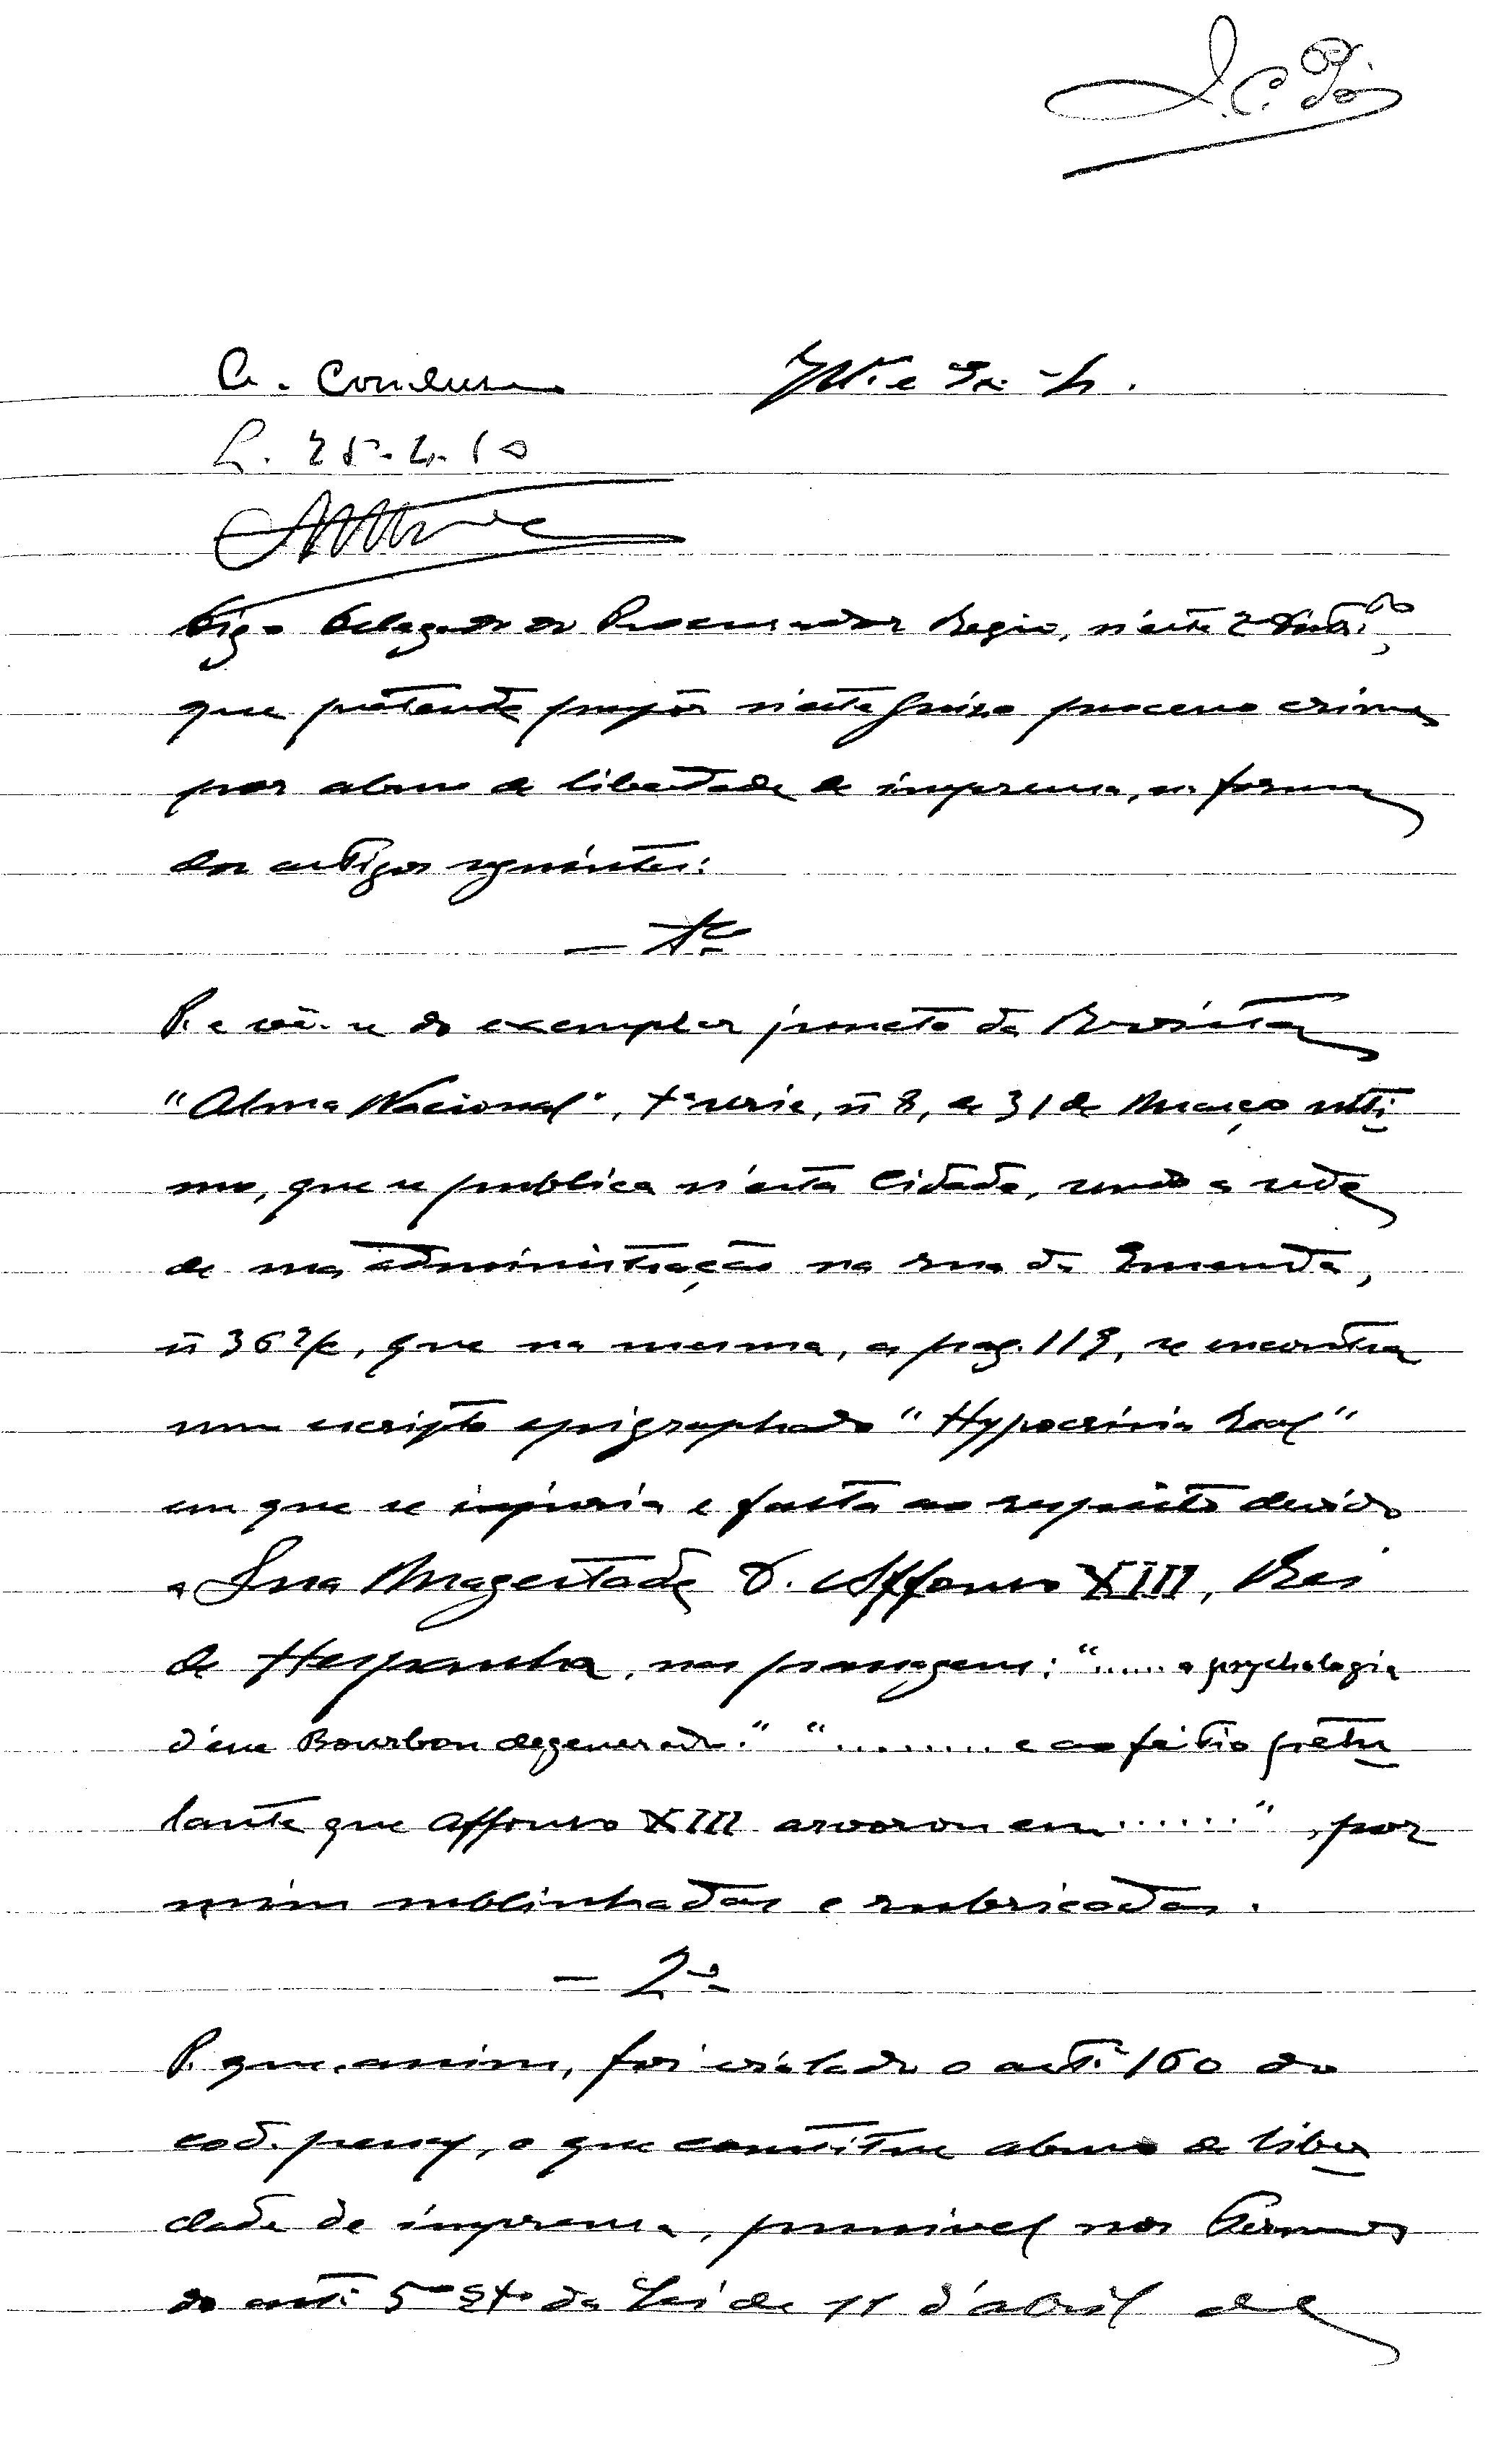 A. Conclusos
L. 25-4-10
Diz o Delegado do Procurador Regio, n'este 2º
que pretende propôr n'este Juizo processo crime
por abuso de liberdade de imprensa, na forma
dos artigos seguintes:
— 1º
P. e vê-se do exemplar juncto da Revista
"Alma Nacional", 1ª serie, nº 8, de 31 de Março ulti
mo, que se publica n'esta Cidade, sendo a séde
de sua administração na rua da Emenda,
nº 36 2º/E, que na mesma, a pag. 119, se encontra
um escripto epigraphado "Hypocrisia Real"
em que se injuria e falta ao respeito devido
a Sua Magestade D. Affonso XIII, Rei
de Hespanha, nas passagens: "...... a psychologia
d'um Bourbon degenerado." "......... e ao feitio petu
lante que Affonso XIII arvorou em ......", por
mim sublinhadas e rubricadas.
— 2º
P. que, assim, foi violado o artº 160 do
cod. penal, o que constitue abuso de liber
dade de imprensa, punivel nos termos
do artº 5º § 1º da Lei de 11 d'abril de